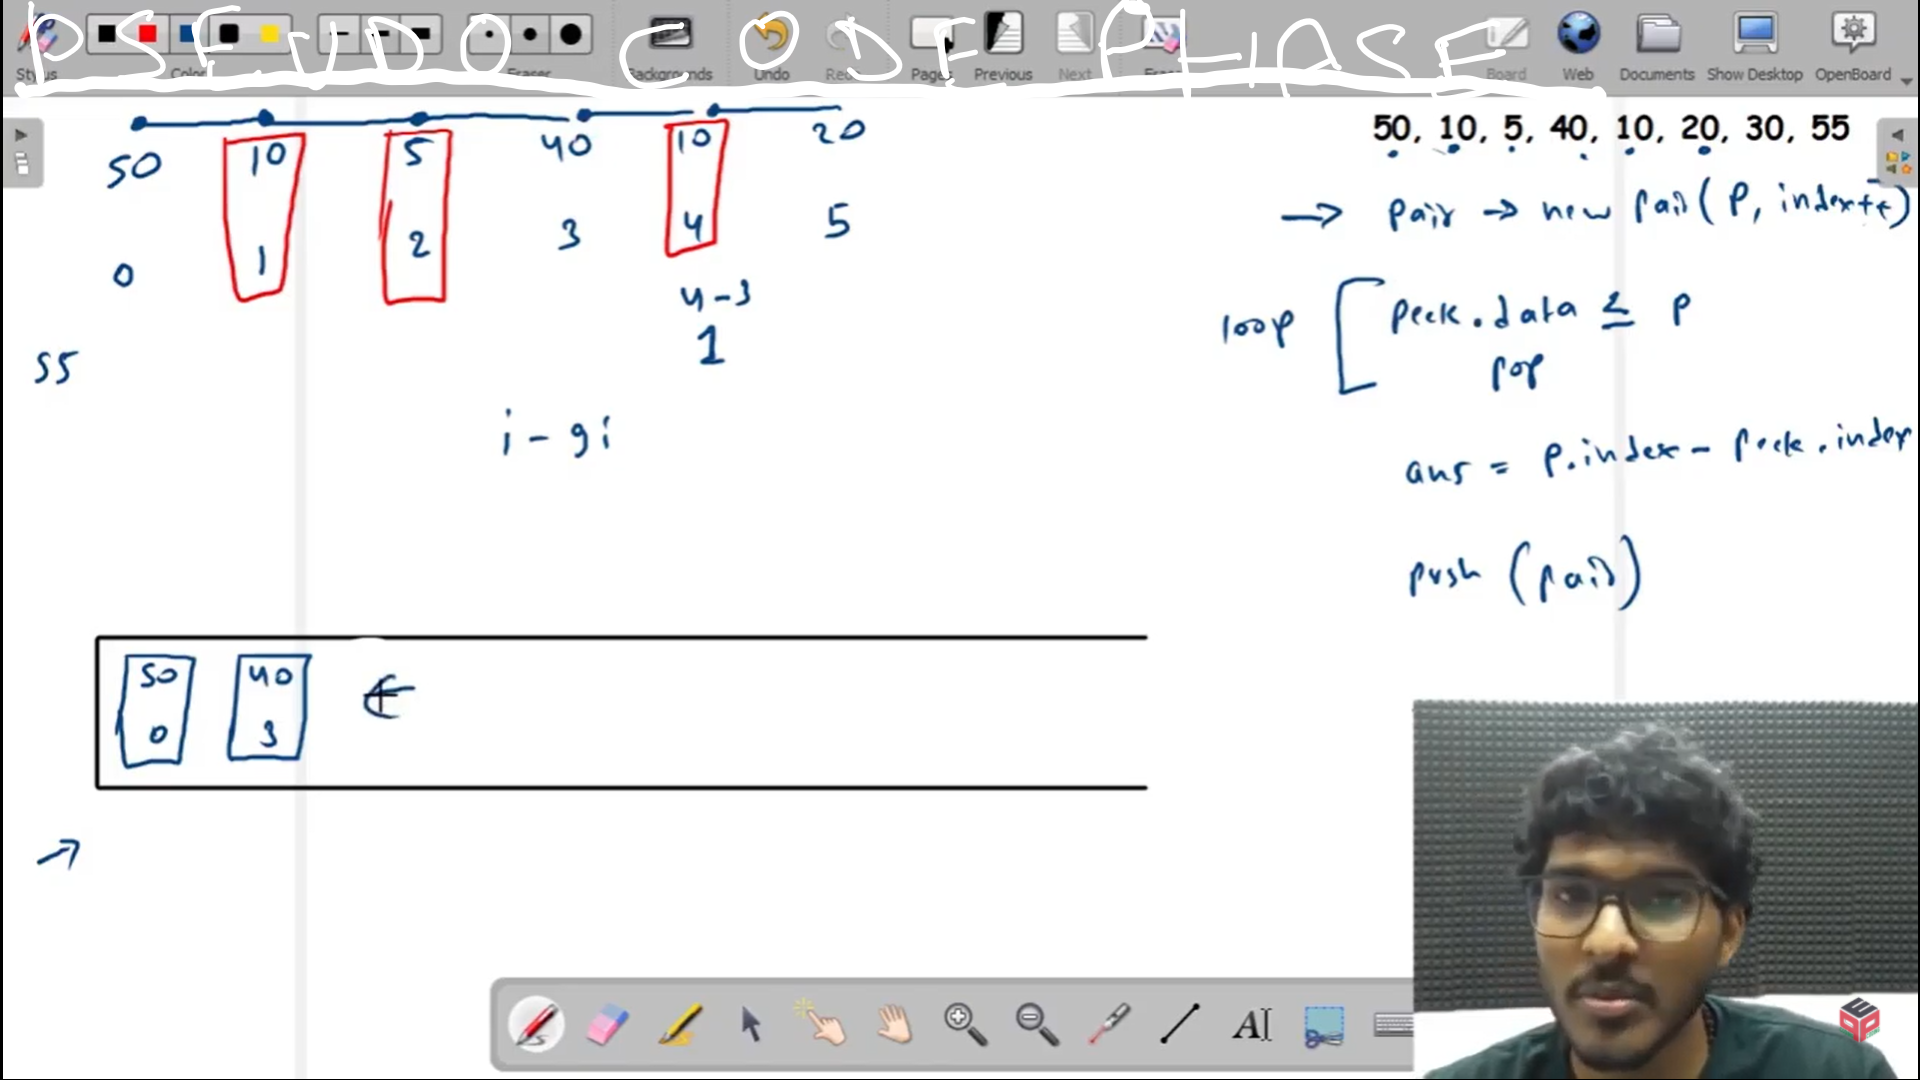 PSEUDO CODE PHASE
Stylus
Color
Eraser
Backgrounds
Undo
Redo
Pages
Previous
Next
Erase
Board
Web
Documents
Show Desktop
OpenBoard
50 10 5 40 10 20
0 1 2 3 4 5
4-3
1
55
i - gi
50, 10, 5, 40, 10, 20, 30, 55
→ pair → new pair(P, index++)
loop [ peek.data ≤ P
pop
ans = P.index - peek.index
push (pair)
50 40 ←
0 3
→
AI